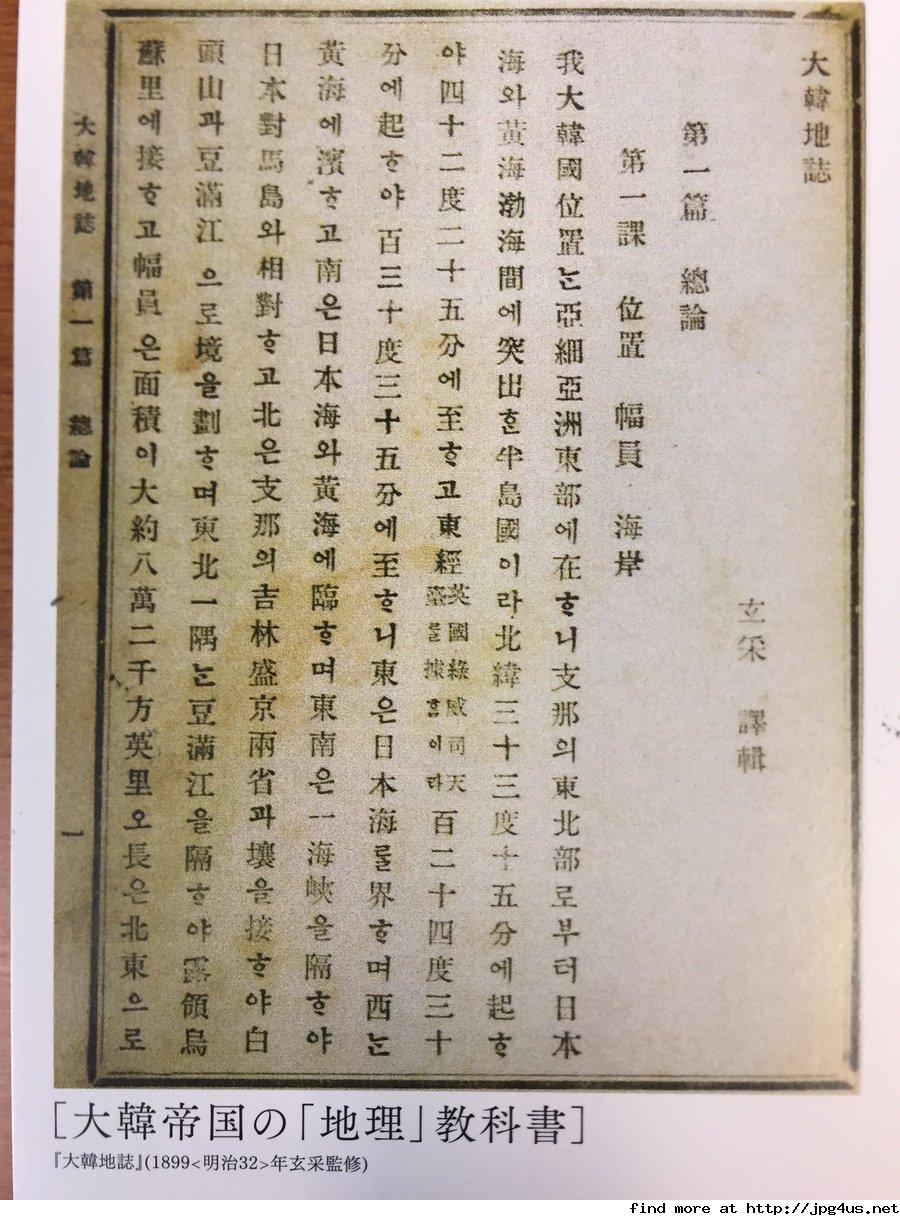 大韓地誌
玄采 譯輯
第一篇 總論
第一課 位置 幅員 海岸
我大韓國位置는亞細亞洲東部에在ᄒᆞ니支那의東北部로부터日本
海와黃海渤海間에突出ᄒᆞᆫ半島國이라北緯三十三度十五分에起ᄒᆞ
야四十二度二十五分에至ᄒᆞ고東經英國綠威司天臺를據ᄒᆞᆷ이라百二十四度三十
分에起ᄒᆞ야百三十度三十五分에至ᄒᆞ니東은日本海를界ᄒᆞ며西는
黃海에濱ᄒᆞ고南은日本海와黃海에臨ᄒᆞ며東南은一海峽을隔ᄒᆞ야
日本對馬島와相對ᄒᆞ고北은支那의吉林盛京兩省과壤을接ᄒᆞ야白
頭山과豆滿江으로境을劃ᄒᆞ며東北一隅는豆滿江을隔ᄒᆞ야露領烏
蘇里에接ᄒᆞ고幅員은面積이大約八萬二千方英里오長은北東으로
大韓地誌 第一篇 總論 一
[大韓帝国の「地理」教科書]
『大韓地誌』(1899<明治32>年玄采監修)
find more at http://jpg4us.net